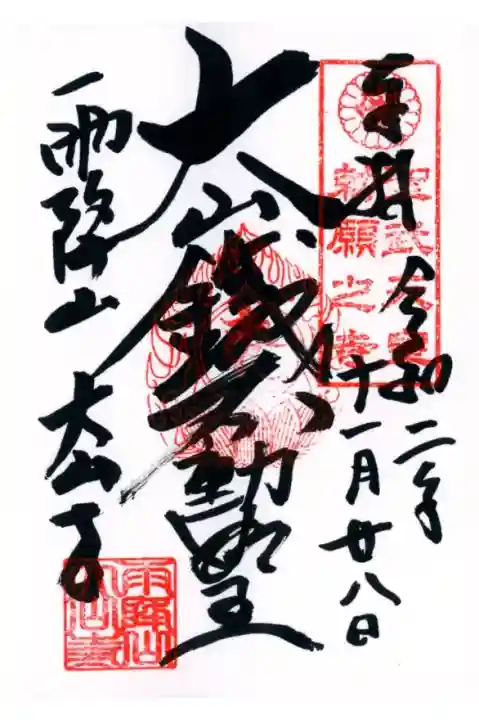 奉拝
令和二年
十一月廿八日
聖武天皇
勅願之寺
大山鉄不動明王
雨降山
大山寺
雨降山
大山寺